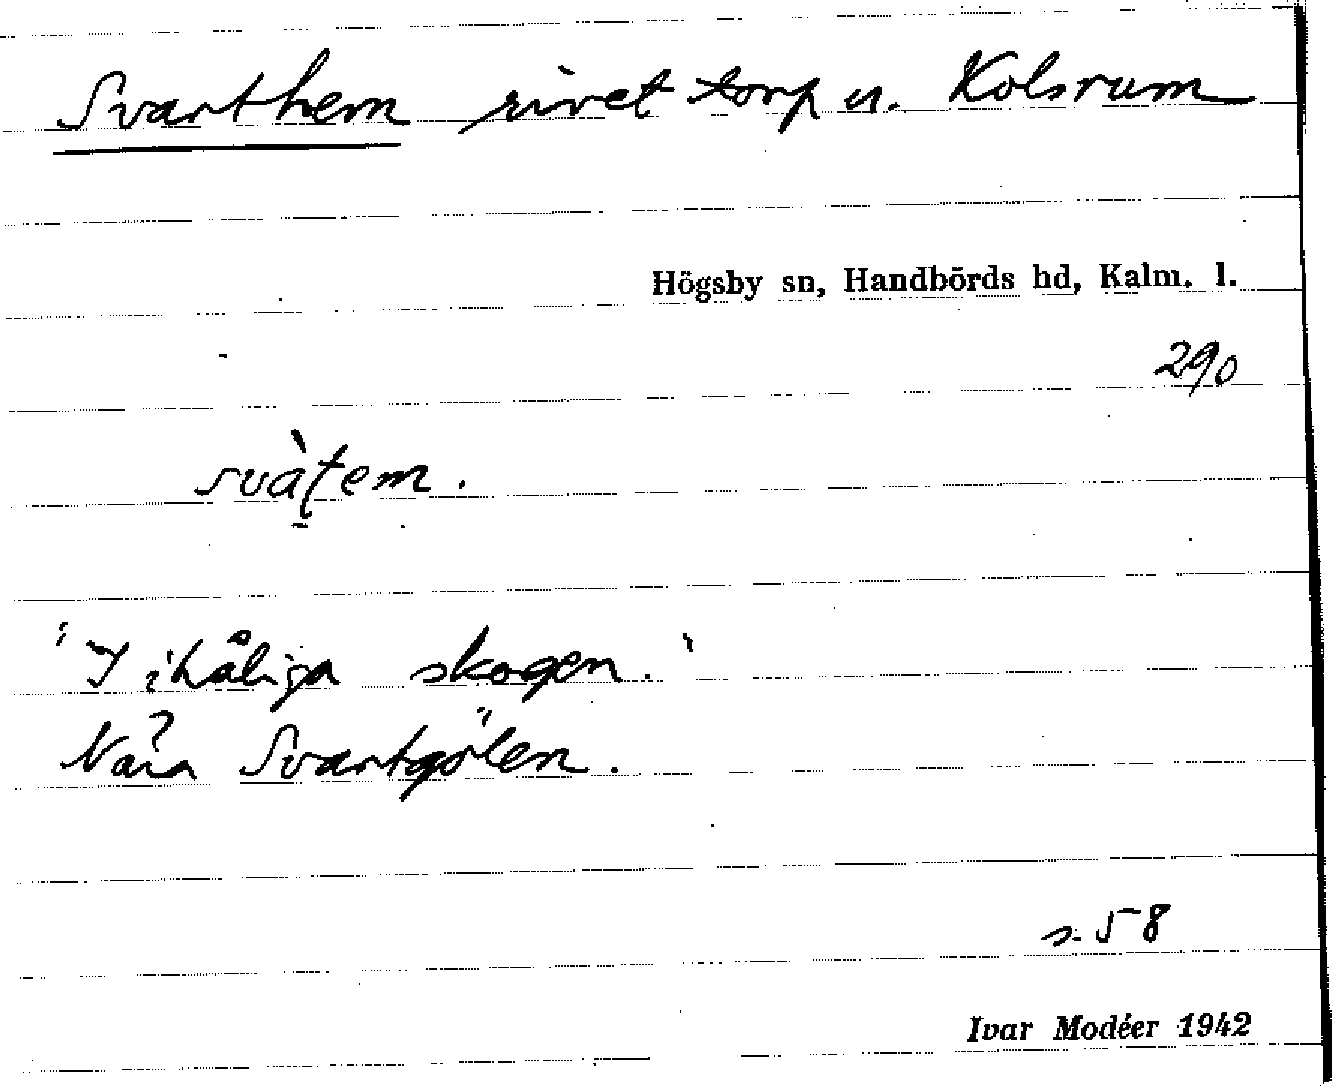 Svarthem rivet torp u. Kolsrum
Högsby sn, Handbörds hd, Kalm. l.
290
svàt̠em.
"I ihåliga skogen."
Nära Svartgölen.
s. 58
Ivar Modéer 1942